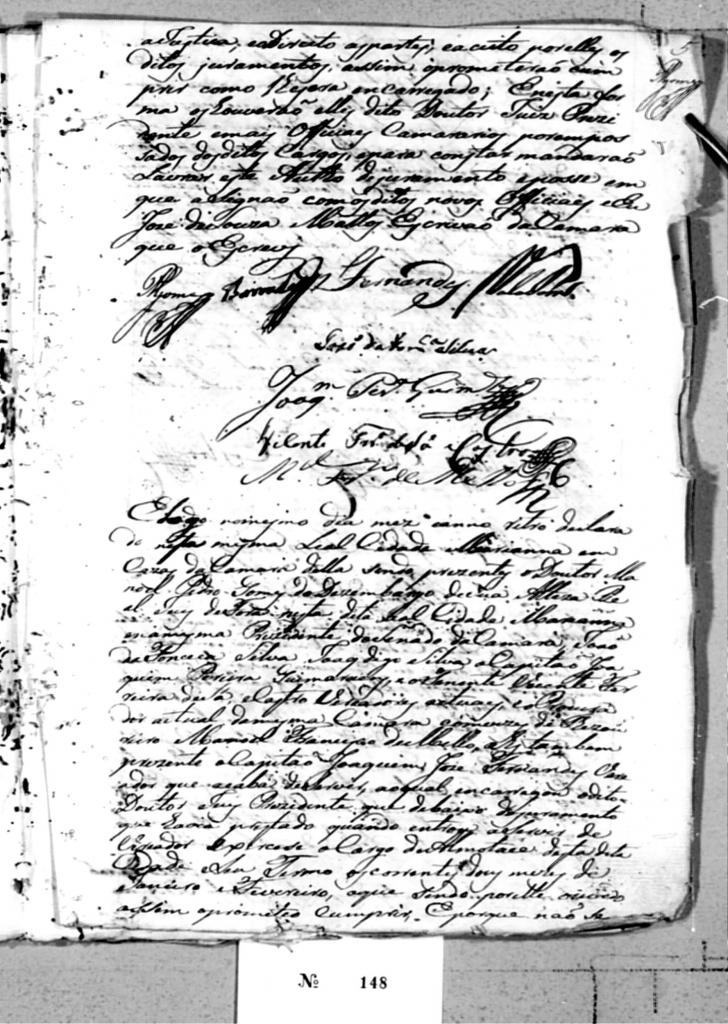 a Justiça, e o Direito as partes; e aceito por elles os
ditos juramentos, assim o prometerão cum
prir como lhes era encarregado; E nesta for
ma os houverão elle dito Doutor Juiz Prezi
dente e mais Officiaes Camararios por empos
sados dos ditos Cargos, e para constar mandarão
lavrar este Autto de juramento e posse em
que asignão com os ditos novos Officiaes e Eu
José de Souza Mattos Escrivão da Camara
que o Escrevy
Thomé Fernandes
José da Silva
Joaqm Perª Guim
Vicente Frª de Sá e Castro
Ml Frco de Mello
E logo no mesmo dia mez e anno retro declara
do nesta mesma Leal Cidade Marianna em
Cazas da Camara della sendo prezentes o Doutor Ma
noel Pedro Gomes do Dezembargo de sua Alteza Re
al Juiz de Fora nesta dita Leal Cidade Marianna
e na mesma Prezidente do Senado da Camara João
da Fonceca Silva Joaq digo Silva o Capitão Joa
quim Pereira Guimarães, e o Tenente Vicente Fer
reira de Sá e Castro Vereadores actuaes e o Procura
dor actual da mesma Camara
Manoel Francisco de Mello, ahy tambem
prezente o Capitão Joaquim José Fernandes Vere
ador que acaba de servir, ao qual encarregou o dito
Doutor Juiz Prezidente que debaixo do juramento
que havia prestado quando entrou a servir de
Vereador exercese o Cargo de Almotace desta dita
Cidade e seu Termo os correntes dous mezes de
Janeiro e Fevereiro, o que sendo por elle ouvido
assim o prometeo cumprir. E porque não se
5
Thomé
Nº 148